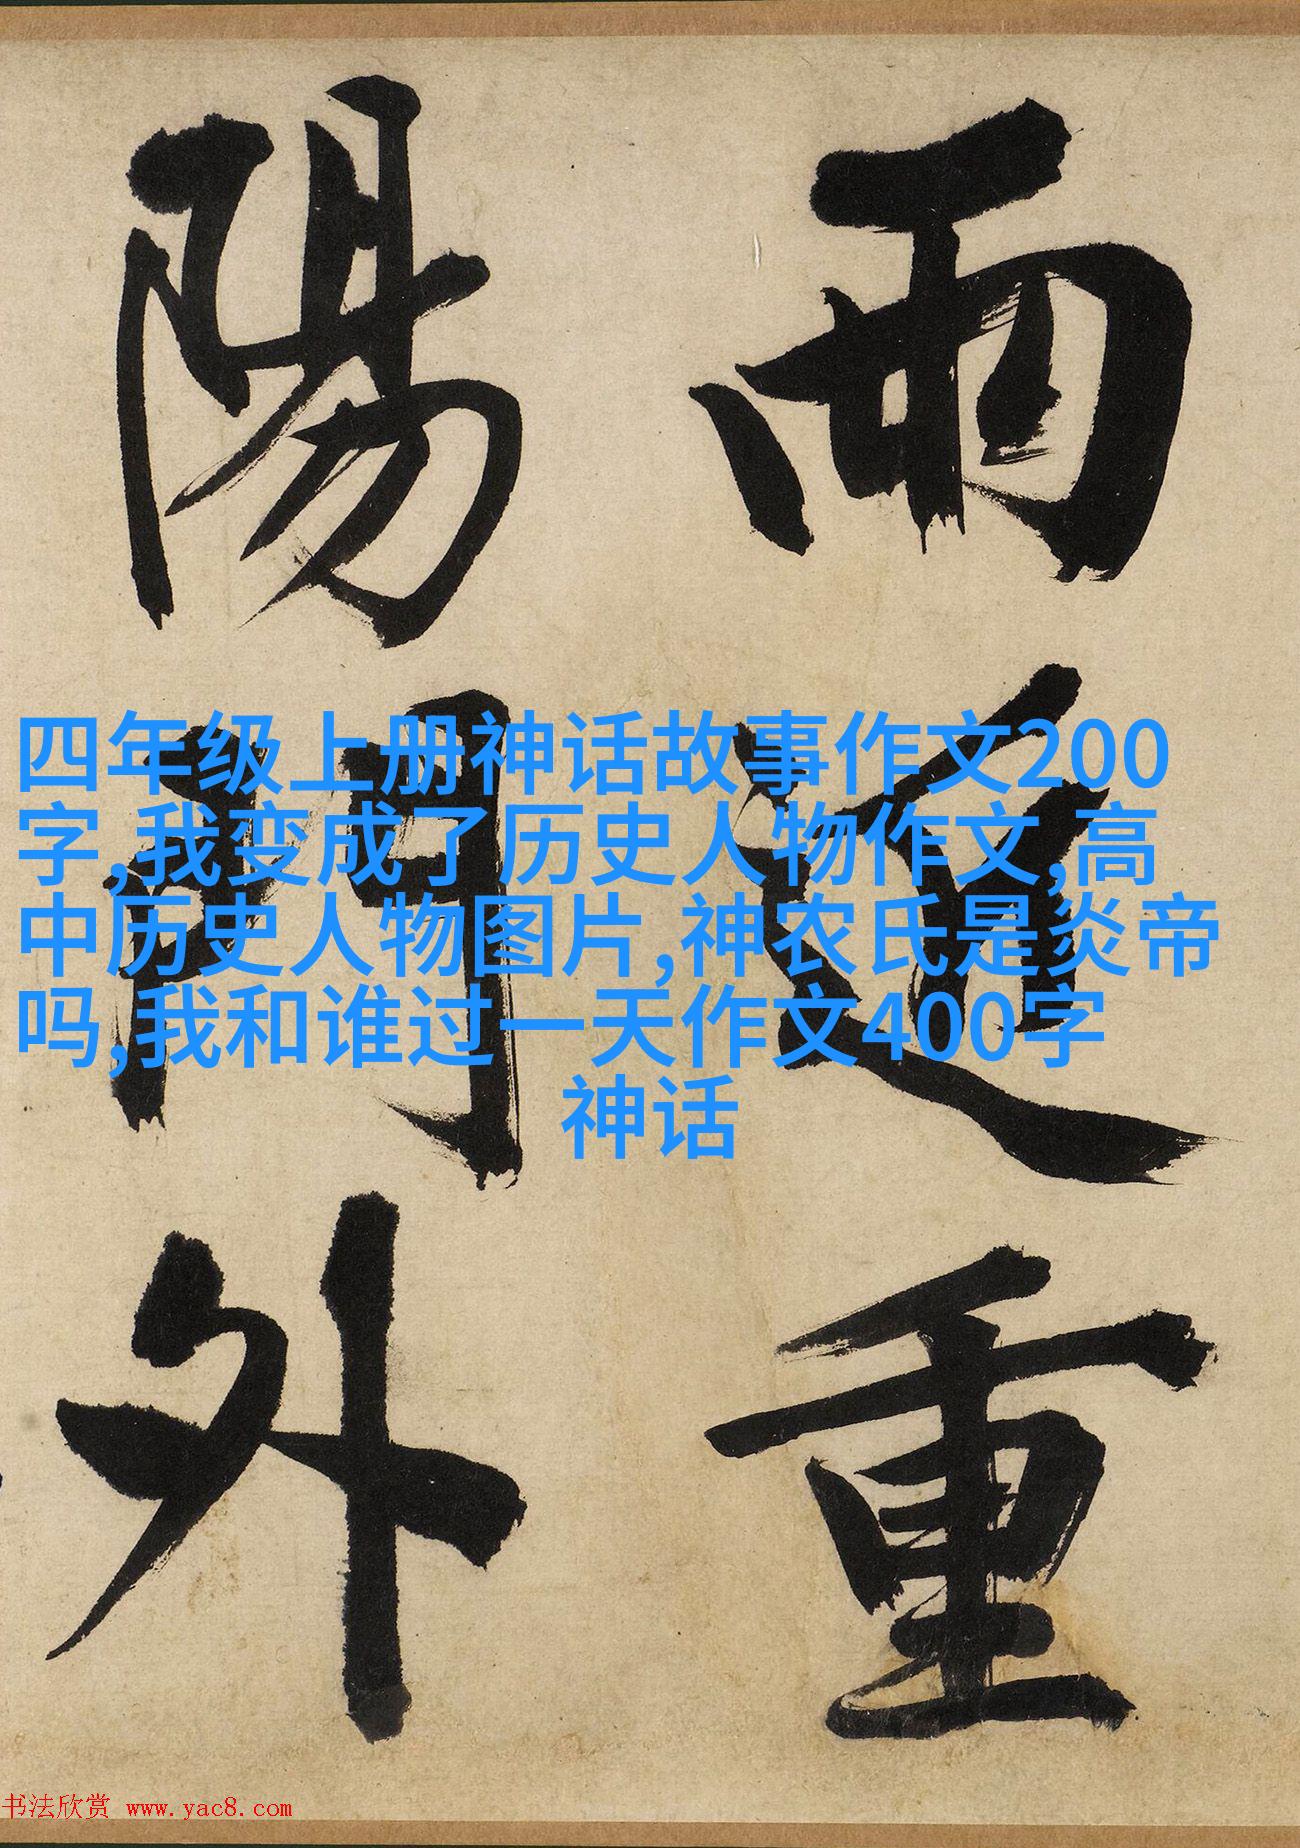 雨近重
陽門外
四年级上册神话故事作文200
字,我变成了历史人物作文,高
中历史人物图片,神农氏是炎帝
吗,我和谁过一天作文400字
神话
书法欣赏 www.yac8.com